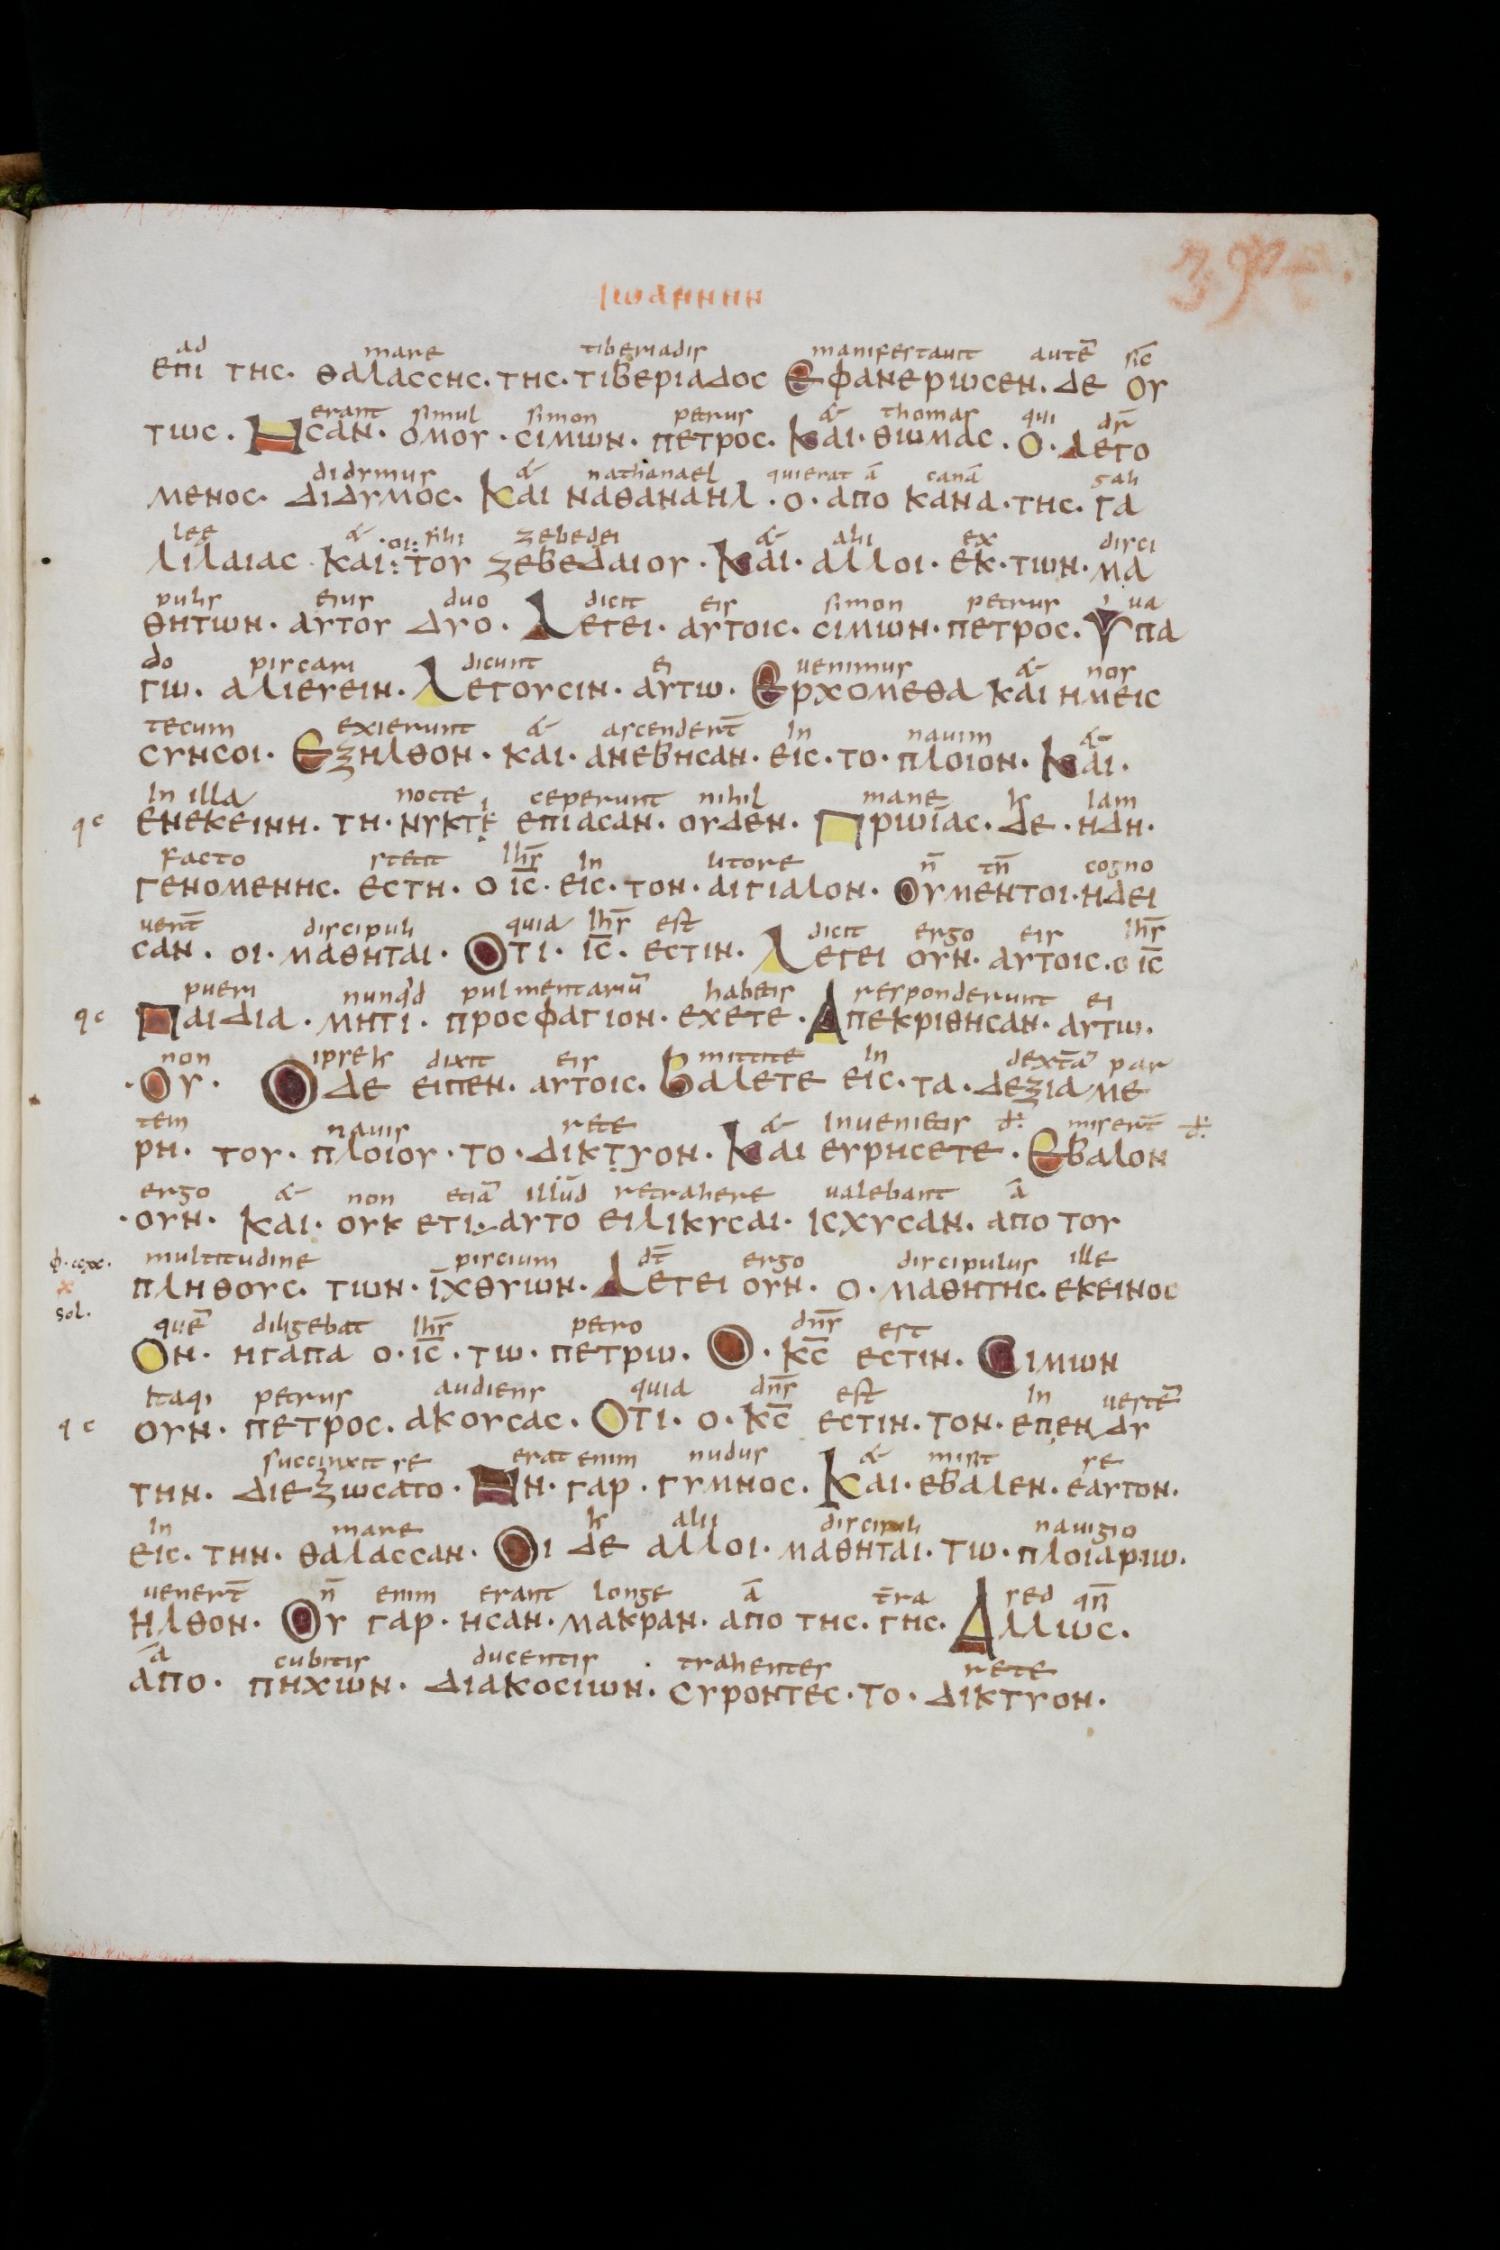 ιωαννην
ad mare tiberiadis manifestauit autē sic̄
επι της. θαλασσης. της. τιβεριαδος Εφανεριωσεν. δε ου
erant simul simon petrus & thomas qui dr̄
τως. Ησαν. ομου. σιμων. πετρος. Και. θωμας. Ο. Λεγο
didymus & nathanael qui erat ā canā gali
μενος. διδυμος. Και ναθαναηλ. ο. απο κανα. της. γα
lee & filii zebedei & alii ex disci
λιλαιας και: ·οι: του ζεβεδαιου. Και. αλλοι. εκ. των. μα
pulis eius duo dicit eis simon petrus ua
θητων. αυτου δυο. Λεγει. αυτοις. σιμων. πετρος. Υπα
do piscari dicunt ei uenimus & nos
γω. αλιευειν. Λεγουσιν. αυτω. Ερχομεθα και ημεις
tecum exierunt & ascendert̄ in nauim &
συνσοι. Εξηλθον. και. ανεβησαν. εις. το. πλοιον. Και.
in illa nocte ceperunt nihil mane iam
ενεκεινη. τη. νυκτε ι επιασαν. ουδεν. Πρωϊας. δε. ηδη.
facto stetit ihs̄ in litore n̄ tn̄ cogno
γενομενης. εστη. ο ις̄. εις. τον. αιγιαλον. Ουμεντοι. ηδει
uert̄ discipuli quia ihs̄ est dicit ergo eis ihs̄
σαν. οι. μαθηται. Οτι. ις̄. εστιν. Λεγει ουν. αυτοις. ο ις̄
pueri nunqd pulmentariū habetis responderunt ei
Παιδια. μητι. προσφαγιον. εχετε. Απεκριθησαν. αυτω.
non dixit eis mittite in dextā par
·Ου. Οδε ειπεν. αυτοις. Βαλετε εις. τα. δεξια με
tem nauis rete & inuenietis misert̄
ρη. του. πλοιου. το. δικτυον. Και ευρησετε. Εβαλον
ergo & non etiā illud retrahere ualebant ā
·ουν. και. ουκ ετι. αυτο ειλικυσαι. ισχυσαν. απο του
multitudine piscium dt̄ ergo discipulus ille
πληθους. των. ϊχθυων. Λεγει ουν. ο. μαθητης. εκεινος
sol.
quē diligebat ihs̄ petro dns̄ est
Ον. ηγαπα ο. ις̄. τω. πετριω. Ο. κς̄ εστιν. Σιμων
itaq; petrus audiens quia dns̄ est in uestē
ουν. πετρος. ακουσας. Οτι. ο. κς̄ εστιν. τον. επενδυ
succinxit se erat enim nudus & misit se
την. διεζωσατο. Ην. γαρ. γυμνος. Και. εβαλεν. εαυτον.
in mare alii discipuli nauigio
εις. την. θαλασσαν. Οι δε αλλοι. μαθηται. τω. πλοιαριω.
uenert̄ n̄ enim erant longe ā tr̄a sed qn̄
ηλθον. Ου γαρ. ησαν. μακραν. απο της. γης. Αλλιως.
ā cubitis ducentis trahentes rete
απο. πηχων. διακοσιων. συροντες. το. δικτυον.